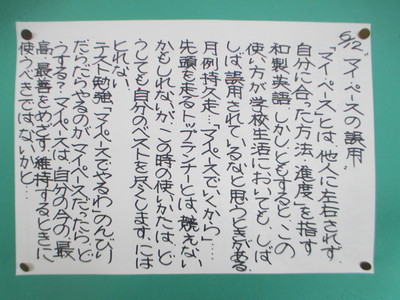 6/12 "マイペースの誤用"
「マイペース」とは、他人に左右されず、
自分に合った方法、進度を指す
和製英語。しかしともすると、この
使い方が学校生活においても、しば
しば、誤用されているなと思うときがある。
月例持久走…「マイペースでいくから」……
先頭を走るトップランナーとは、競えない
かもしれないが、この時の使いかたは、ど
うしても自分のベストを尽くします、には
とれない。
テスト勉強「マイペースでやるわ」のんびり
だらだらやるのがマイペースだったら、ど
うする？マイペースは、自分の今の最
高、最善をめざす、維持するときに
使うべきではないかと…